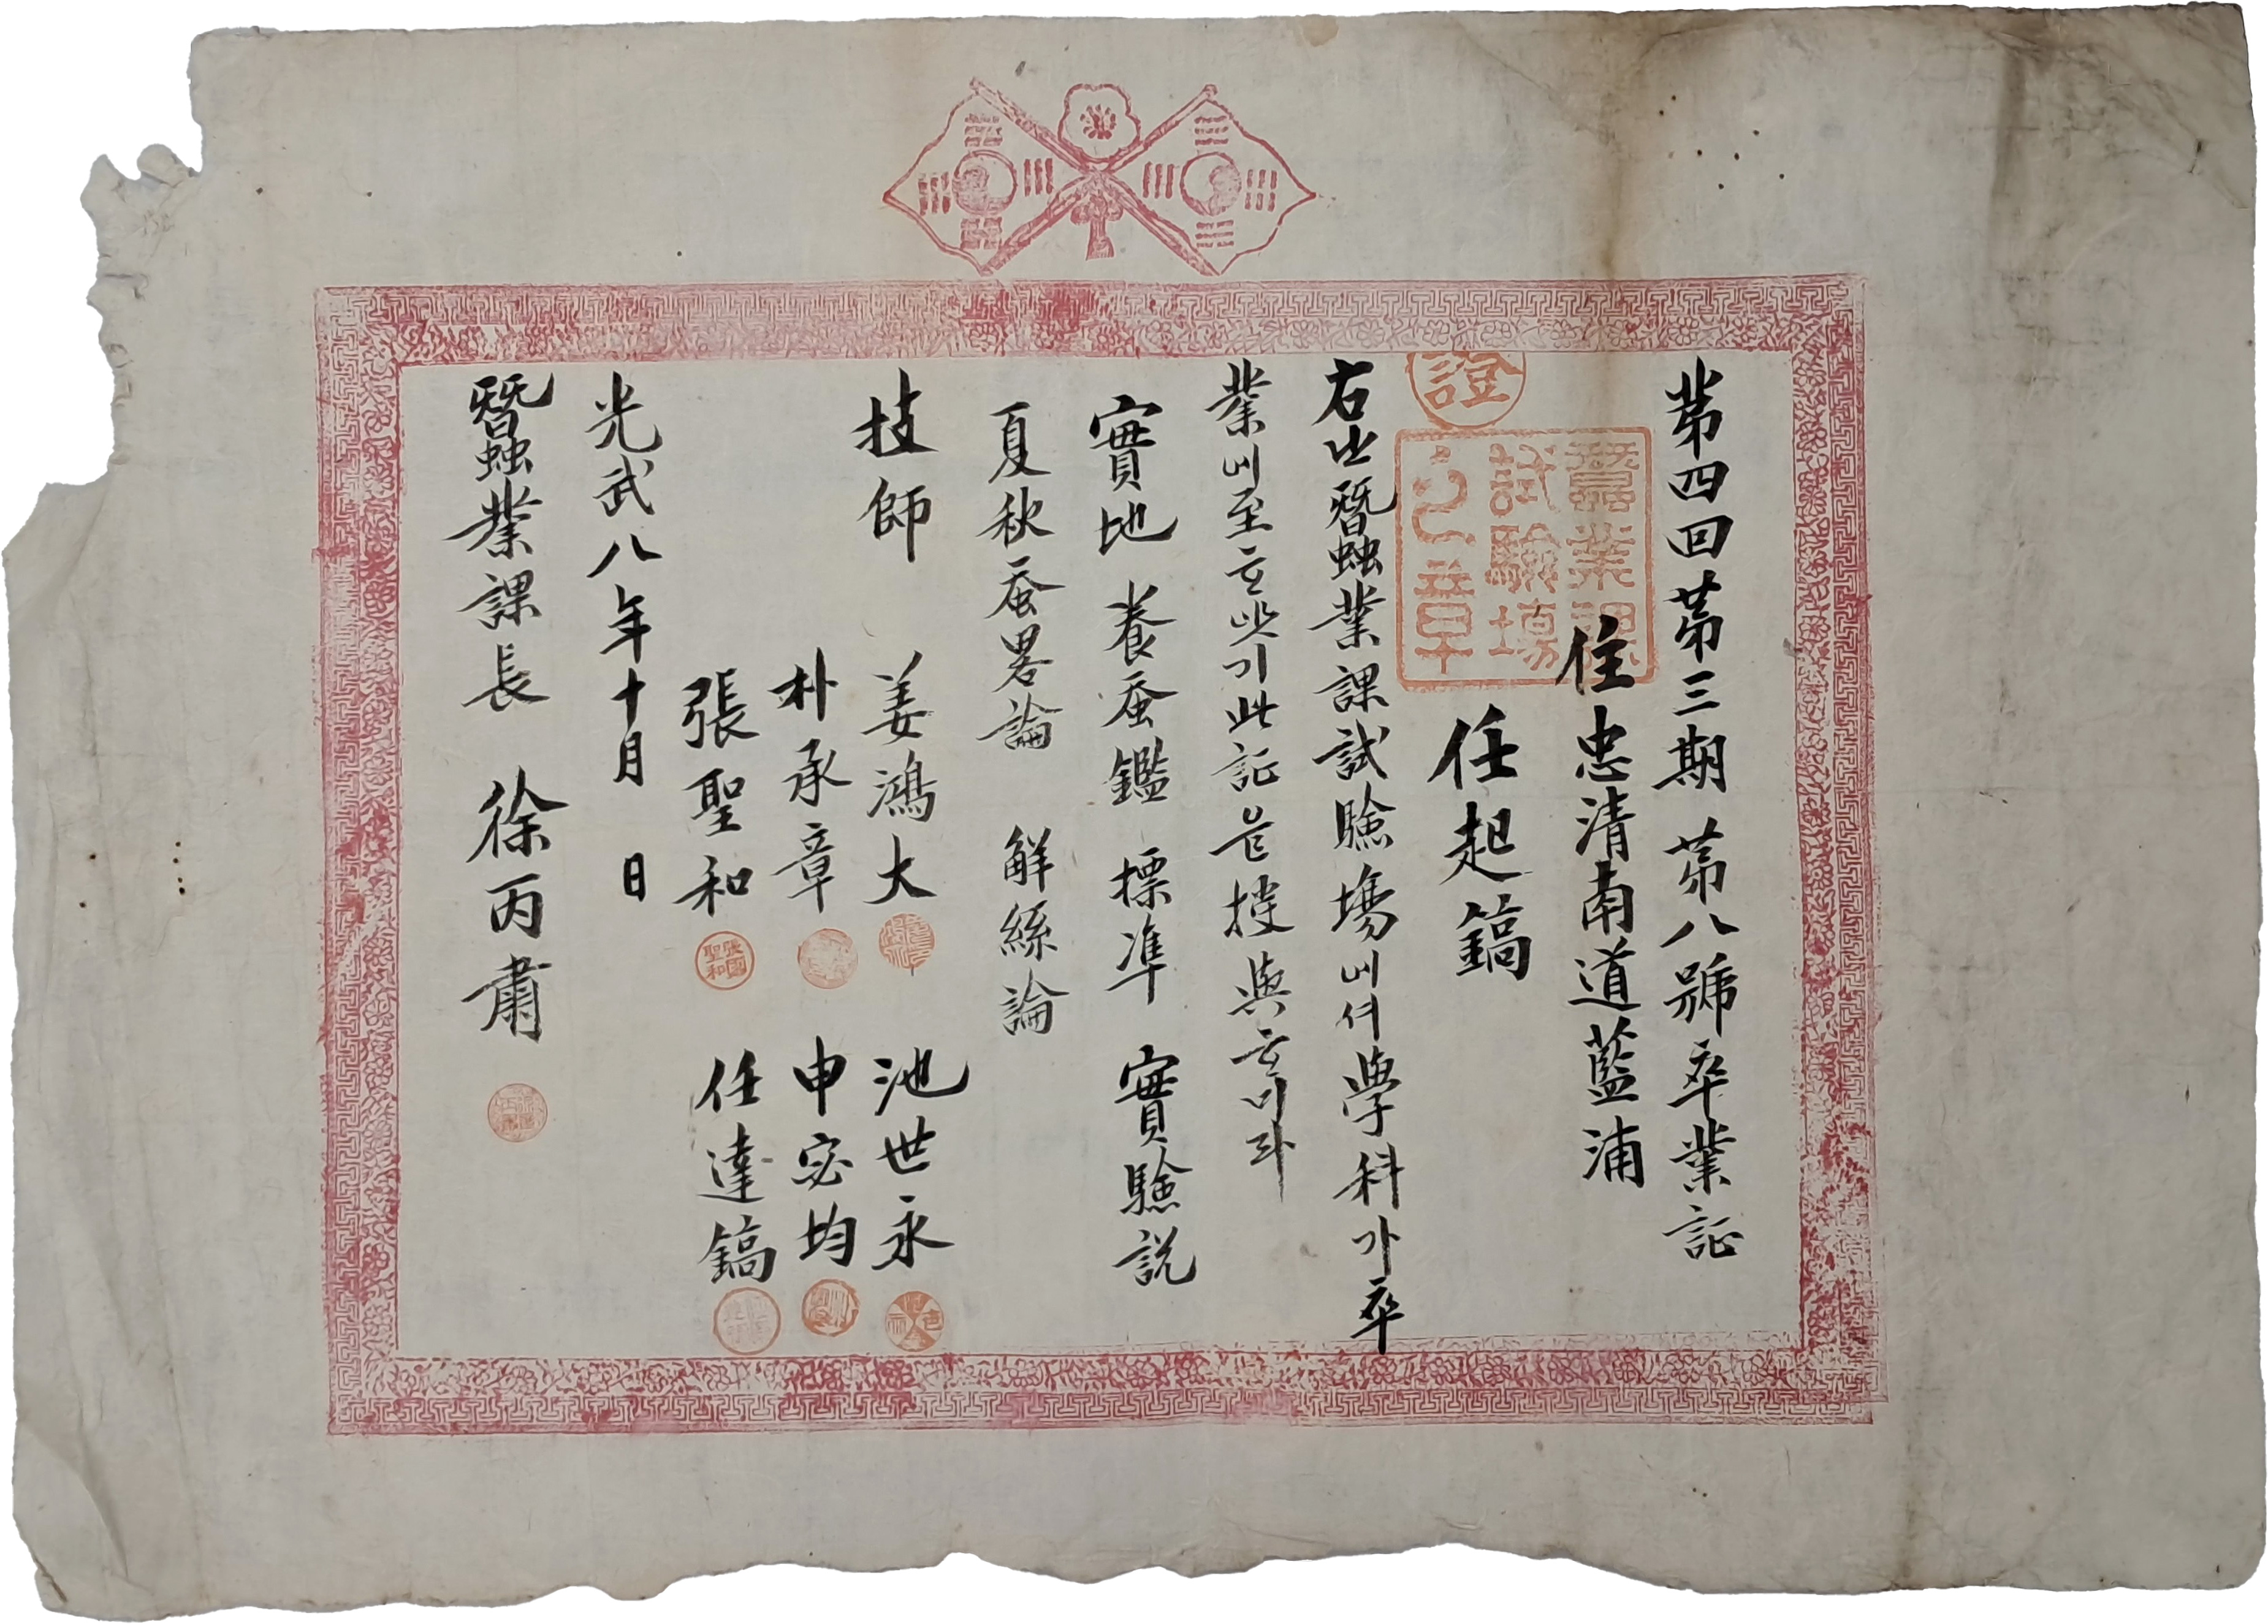 第四回第三期 第八號卒業証
住忠清南道藍浦
任起鎬
證
蚕業課
試驗場
之章
右는蠶業課試驗場에셔學科가卒
業에至ᄒᆞ얏기此証을授與ᄒᆞ미라
實地 養蚕鑑 標準 實驗説
夏秋蚕畧論 解絲論
技師 姜鴻大 池世永
朴承章 申宓均
張聖和 任達鎬
張聖和
光武八年十月 日
蠶業課長 徐丙肅